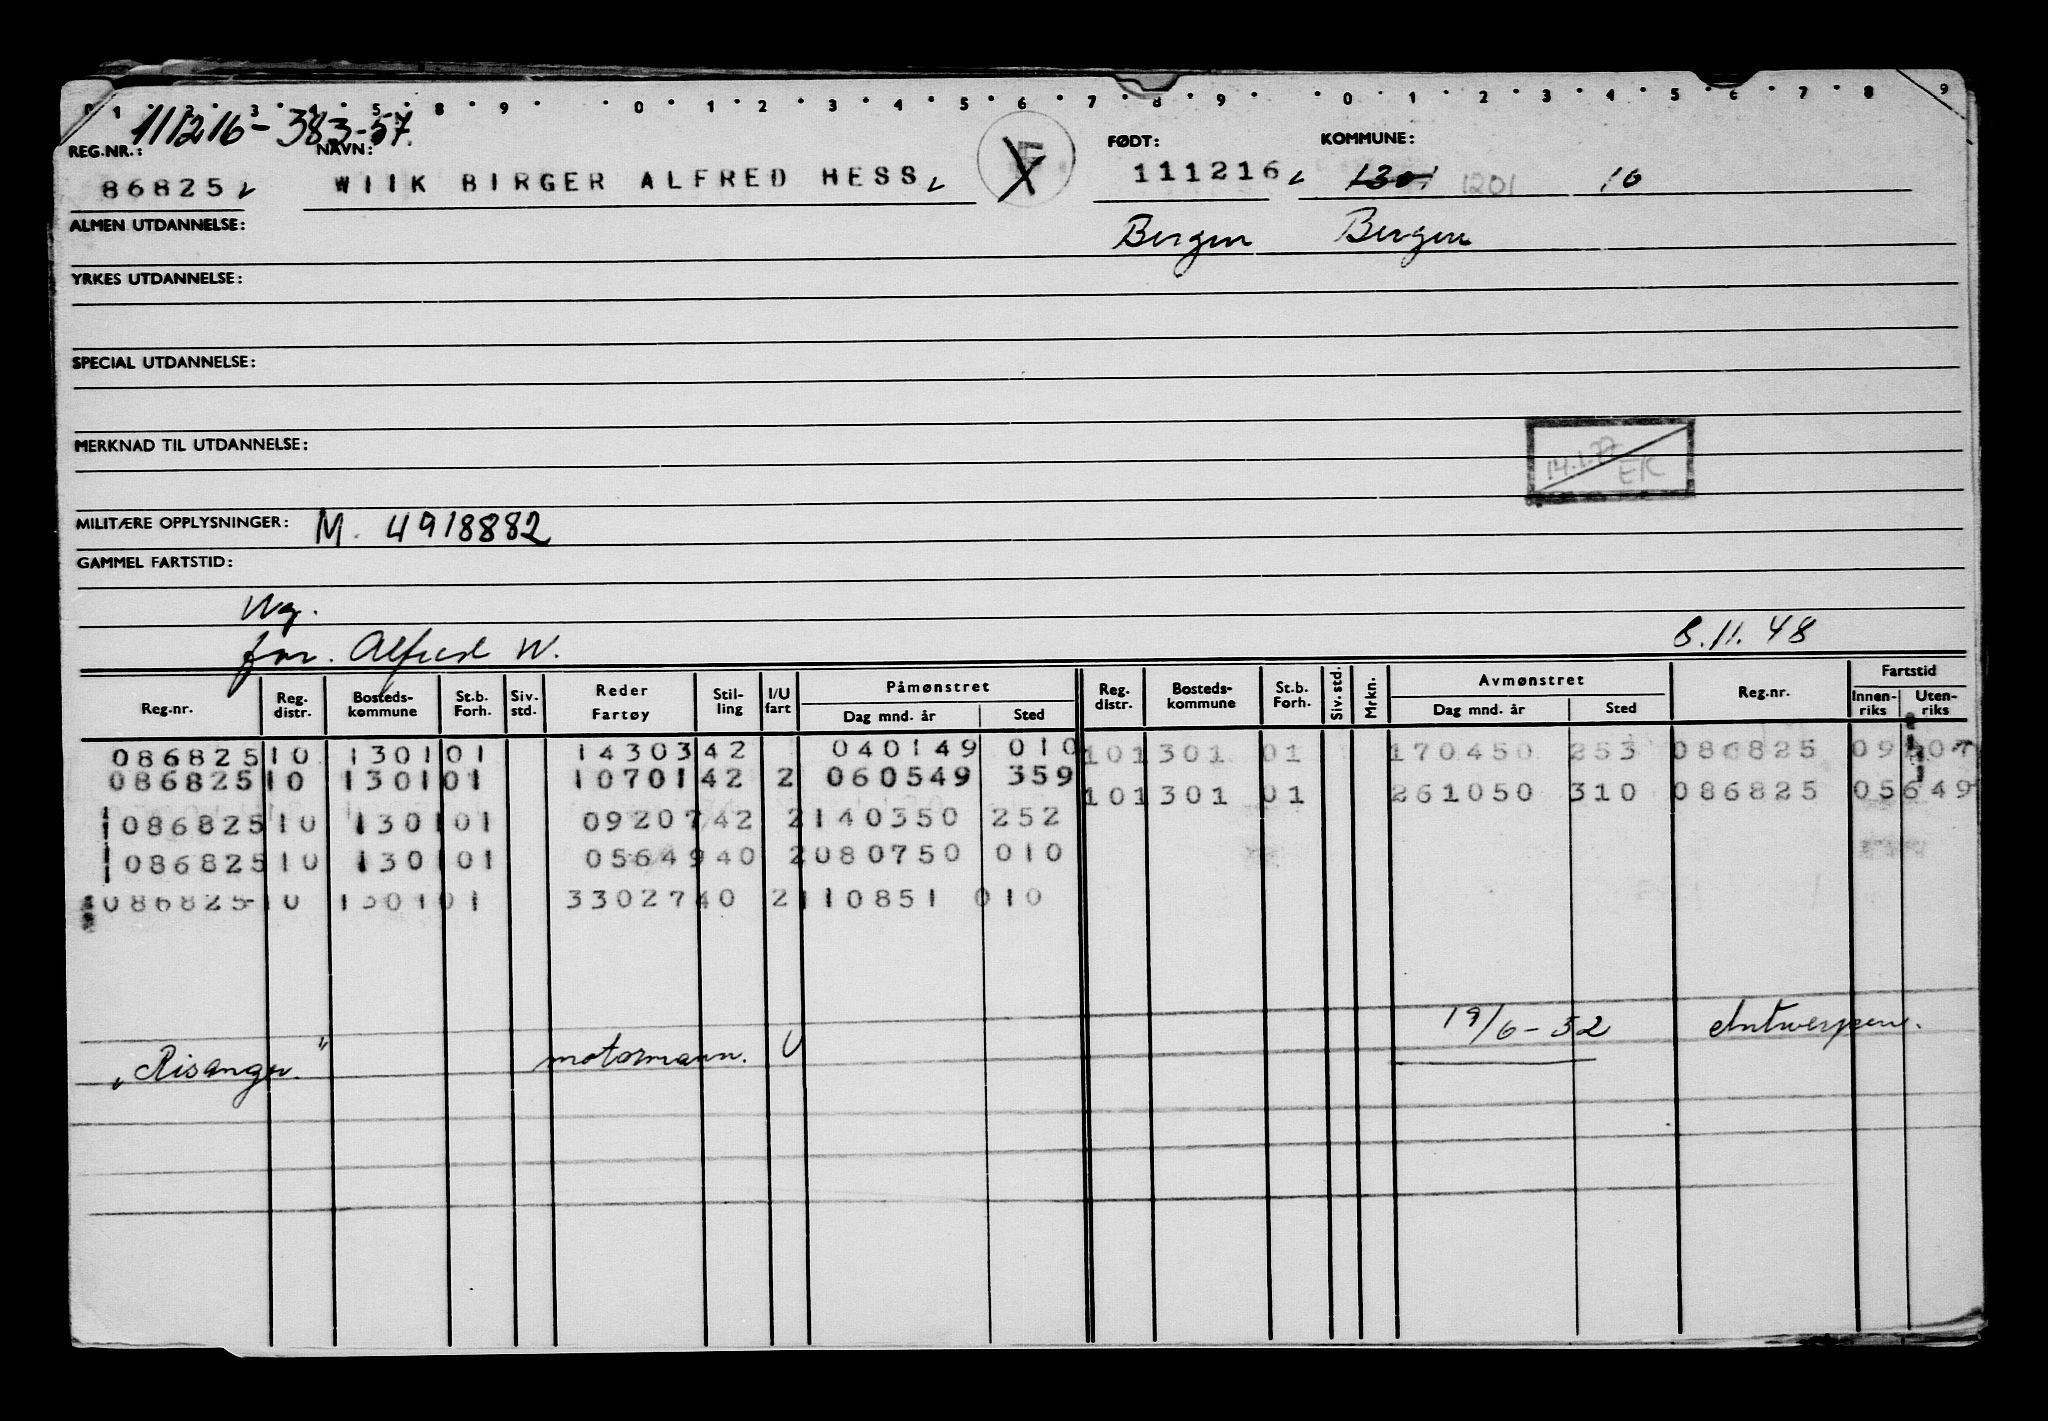 0 1 2 3 4 5 8 9 0 1 2 3 4 5 6 7 8 9 0 1 2 3 4 5 6 7 8 9
111216-38357.
REG.NR.: NAVN: FØDT: KOMMUNE:
86825 WIIK BIRGER ALFRED HESS E 111216 1301 1201 10
ALMEN UTDANNELSE: Bergen Bergen
YRKES UTDANNELSE:
SPECIAL UTDANNELSE:
MERKNAD TIL UTDANNELSE:
14.1.77 EK
MILITÆRE OPPLYSNINGER: M. 4918882
GAMMEL FARTSTID:
Ug.
far. Alfred W. 8.11.48
Reg.nr. Reg. distr. Bosteds-kommune St.b. Forh. Siv. std. Reder Fartøy Stil-ling I/U fart Påmønstret Dag mnd. år Sted Reg. distr. Bosteds-kommune St.b. Forh. Siv. std. Mrkn. Avmønstret Dag mnd. år Sted Reg.nr. Fartstid Innen-riks Uten-riks
086825 10 1301 01 14303 42 040149 010 10 1301 01 170450 253 086825 09207
086825 10 1301 01 10701 42 2 060549 359
10 1301 01 261050 310 086825 05649
086825 10 1301 01 09207 42 2 140350 252
086825 10 1301 01 05649 40 2 080750 010
086825 10 1301 01 33027 40 2 110851 010
"Risanger" motormann. U 19/6-52 Antwerpen.